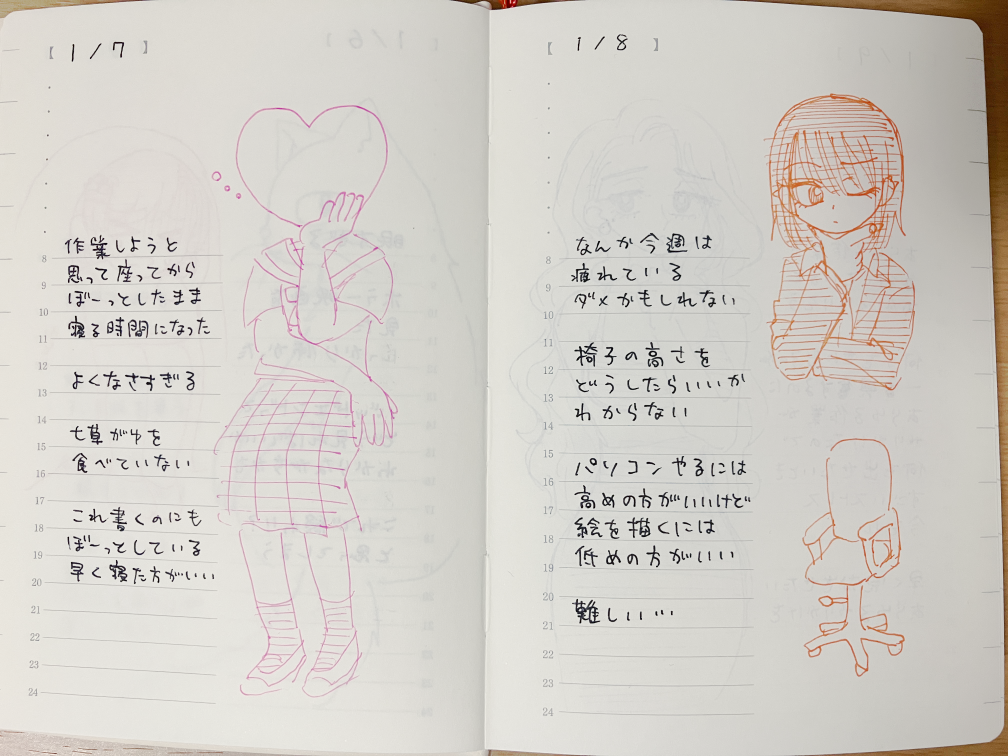 【 1/7 】
作業しようと
思って座ってから
ぼーっとしたまま
寝る時間になった
よくなさすぎる
七草がゆを
食べていない
これ書くのにも
ぼーっとしている
早く寝た方がいい
8
9
10
11
12
13
14
15
16
17
18
19
20
21
22
23
24
【 1/8 】
なんか今週は
疲れている
ダメかもしれない
椅子の高さを
どうしたらいいか
わからない
パソコンやるには
高めの方がいいけど
絵を描くには
低めの方がいい
難しい…
8
9
10
11
12
13
14
15
16
17
18
19
20
21
22
23
24